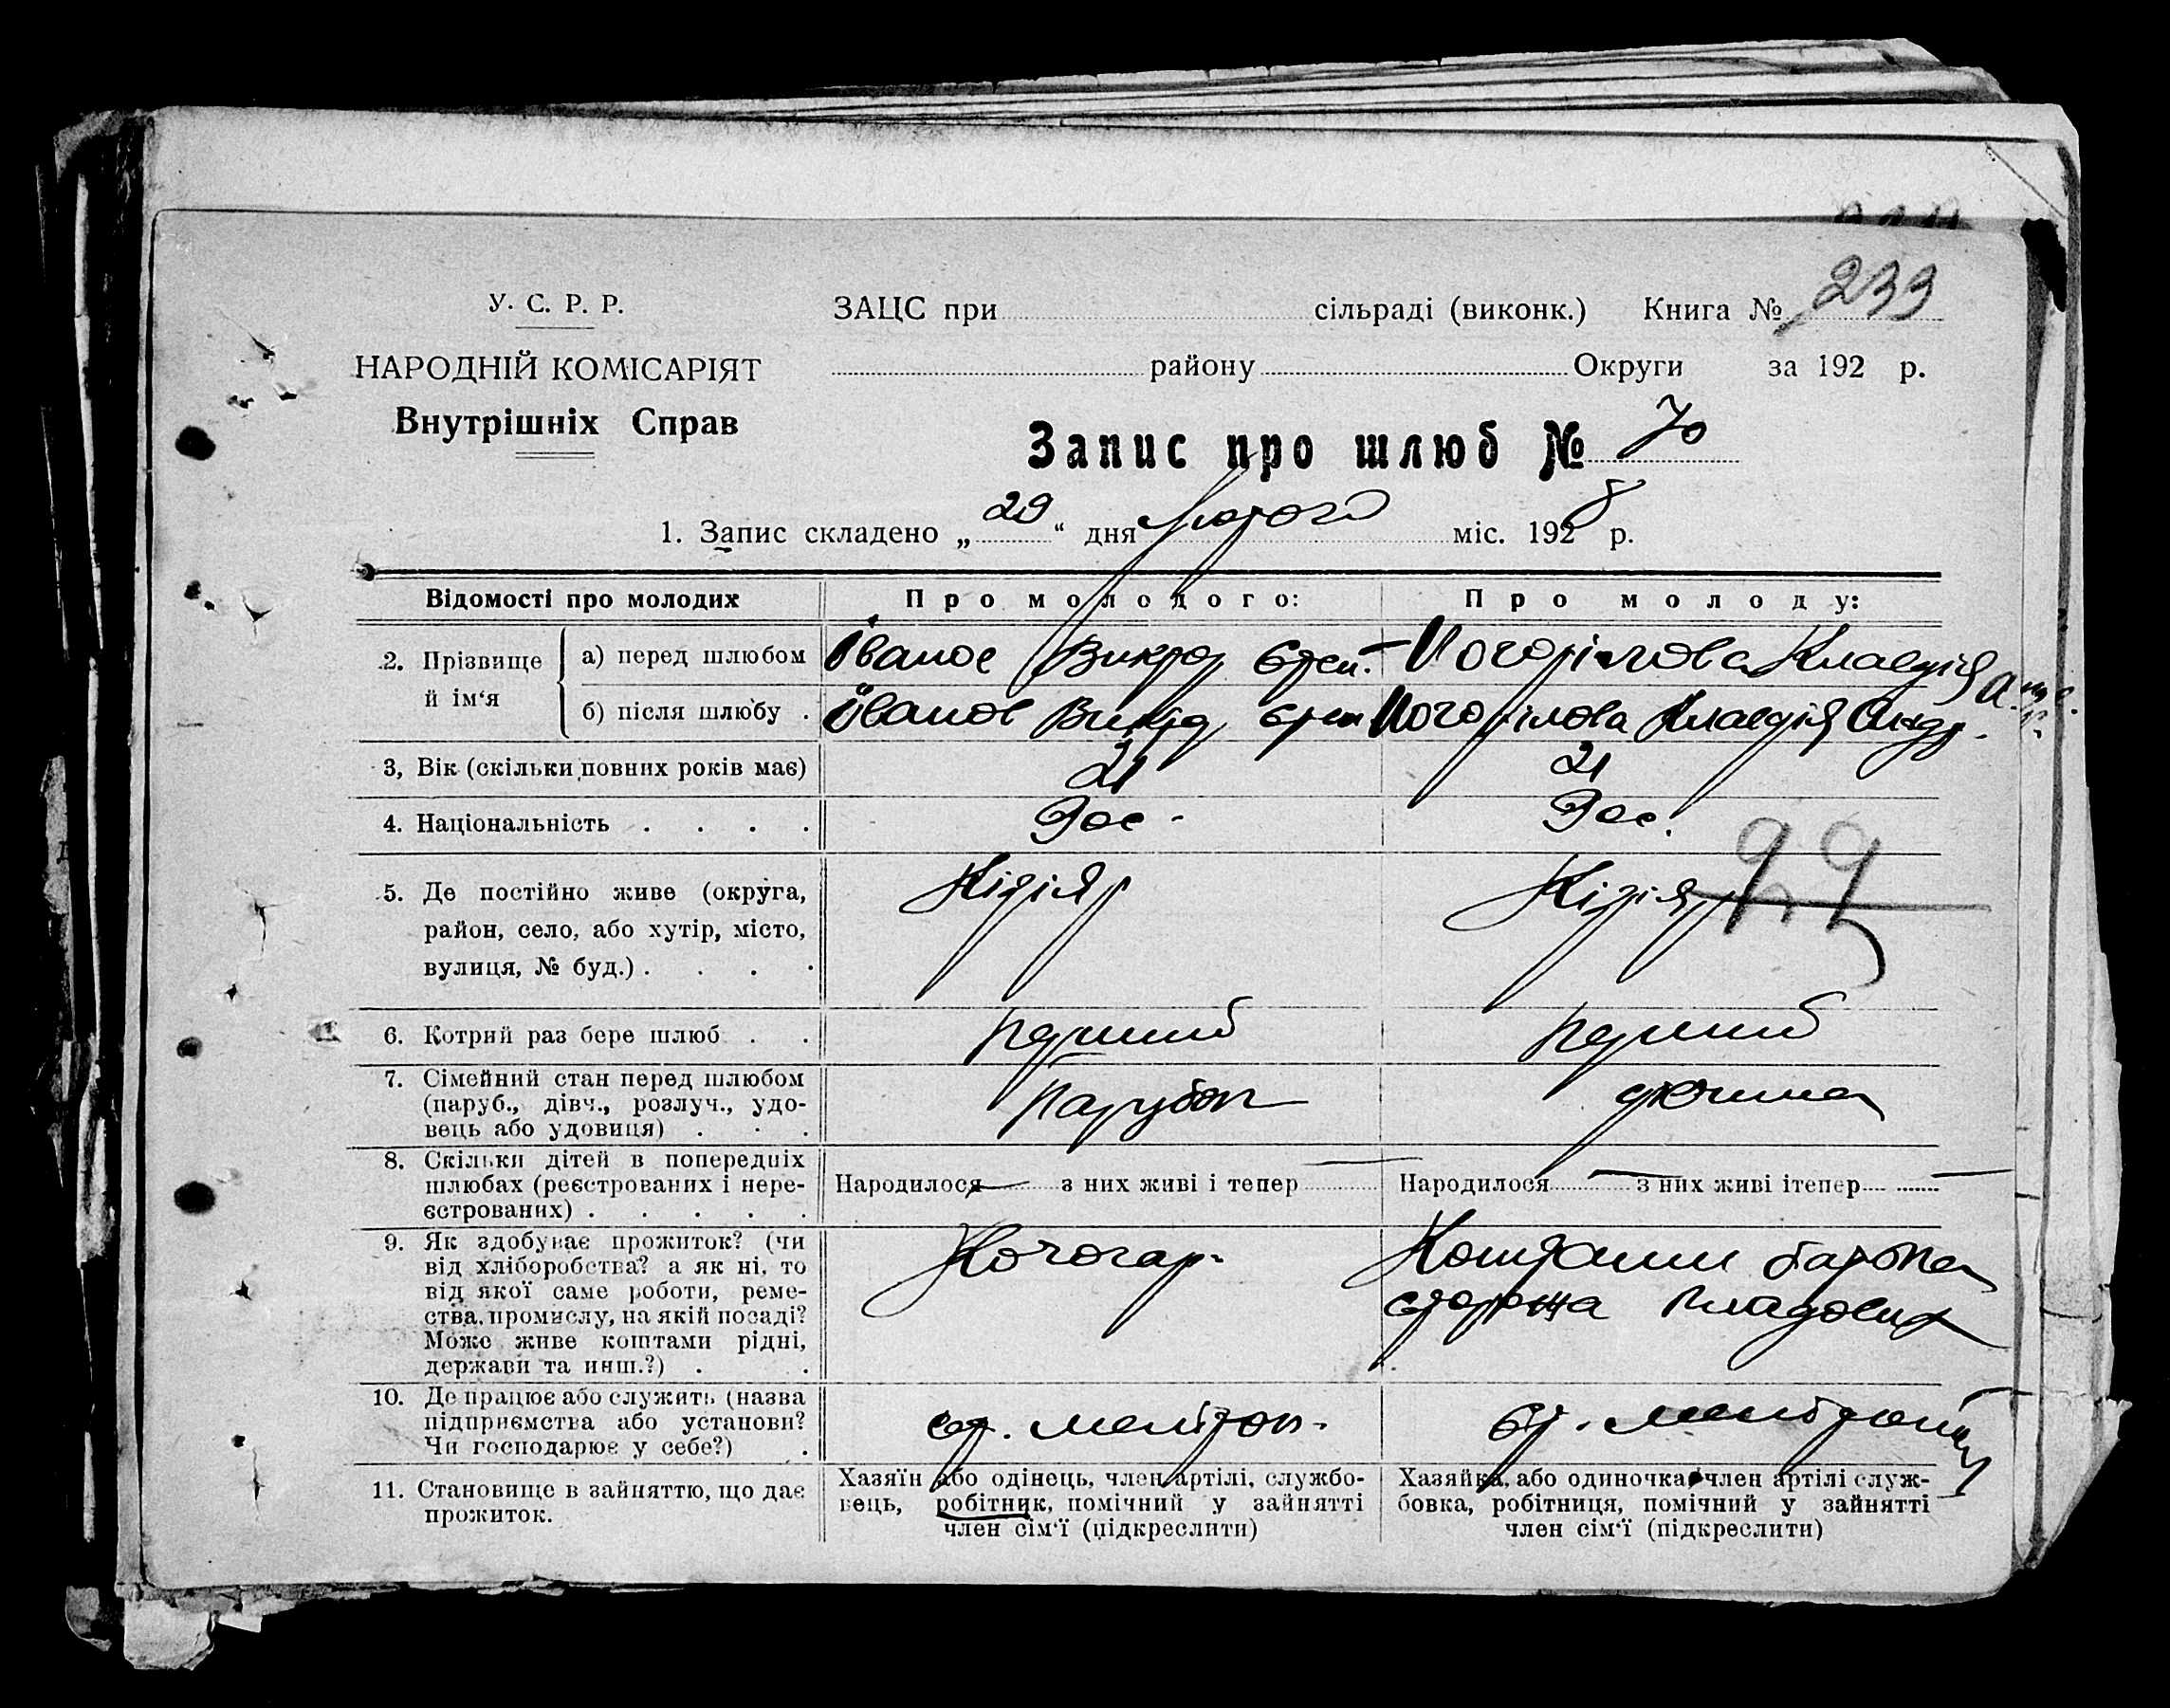 233
У. С. Р. Р.
НАРОДНІЙ КОМІСАРІЯТ
Внутрішніх Справ
ЗАЦС при сільраді (виконк.) Книга №
району Округи за 192 р.
Запис про шлюб № 70
1. Запис складено „29“ дня Лютого міс. 1928 р.
Відомості про молодих Про молодого: Про молоду:
2. Прізвище й ім‘я
а) перед шлюбом Іванов Виктор Єфси.- Погорілова Клавдія
б) після шлюбу . Іванов Виктор Погорілова Клавдія Андр.
3, Вік (скільки повних років має) 21 21
4. Національність . . . . Рос- Рос.
99
5. Де постійно живе (округа,
район, село, або хутір, місто,
вулиця, № буд.) . . . .
Кізіяр Кізіяр
6. Котрий раз бере шлюб . . перший перший
7. Сімейний стан перед шлюбом
(паруб., дівч., розлуч., удо-
вець або удовиця) . . .
Парубок дівчина
8. Скільки дітей в попередніх
шлюбах (реєстрованих і нере-
єстрованих) . . . . .
Народилося — з них живі і тепер — Народилося — з них живі ітепер —
9. Як здобуває прожиток? (чи
від хліборобства? а як ні, то
від якої саме роботи, реме-
ства, промислу, на якій посаді?
Може живе коштами рідні,
держави та инш.?) . .
Кочогар- Коштами батька
сторожа
10. Де працює або служить (назва
підприємства або установи?
Чи господарює у себе?) .
ст. Мелітоп. ст. Мелітополь
11. Становище в зайняттю, що дає
прожиток.
Хазяїн або одінець, член артілі, службо-
вець, робітник, помічний у зайнятті
член сім‘ї (підкреслити)
Хазяйка, або одиночка, член артілі служ-
бовка, робітниця, помічний у зайнятті
член сім‘ї (підкреслити)